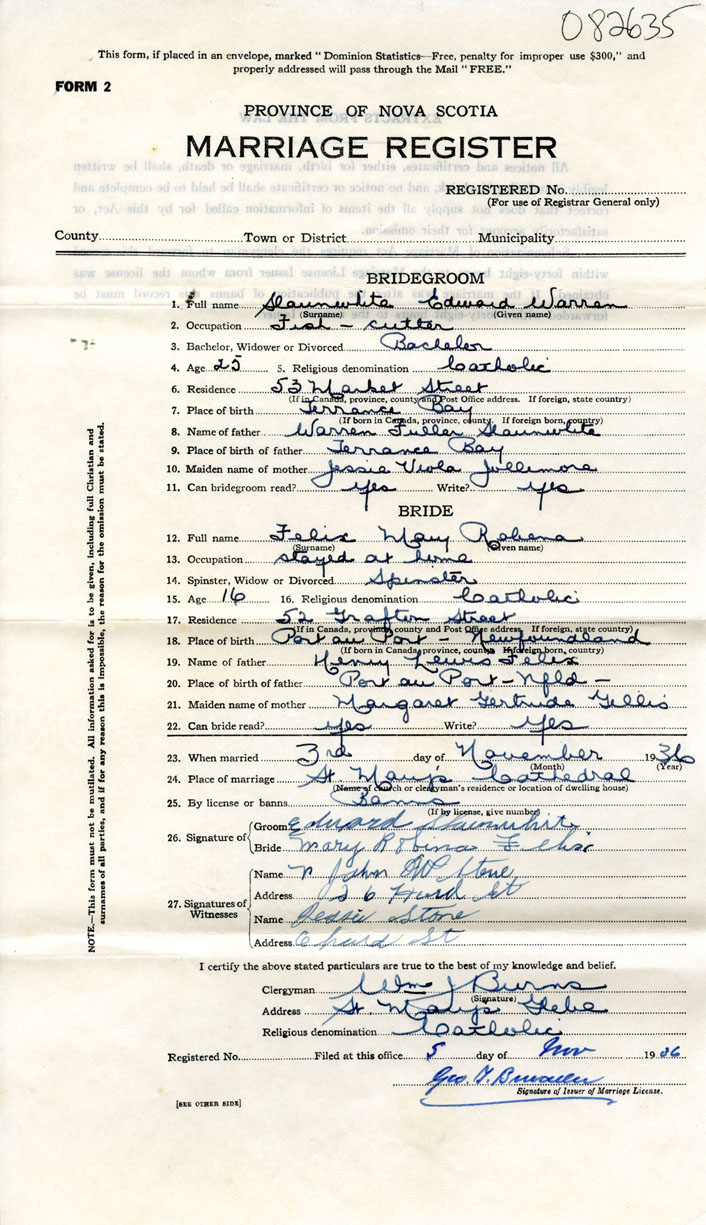 082635
This form, if placed in an envelope, marked "Dominion Statistics—Free, penalty for improper use $300," and
properly addressed will pass through the Mail "FREE."
FORM 2
PROVINCE OF NOVA SCOTIA
MARRIAGE REGISTER
REGISTERED No.
(For use of Registrar General only)
County Town or District Municipality
BRIDEGROOM
1. Full name Slaunwhite Edward Warren
(Surname) (Given name)
2. Occupation Fish - cutter
3. Bachelor, Widower or Divorced Bachelor
4. Age 25 5. Religious denomination Catholic
6. Residence 53 Market Street
(If in Canada, province, county and Post Office address. If foreign, state country)
7. Place of birth Terrance Bay
(If born in Canada, province, county. If foreign born, country)
8. Name of father Warren Fuller Slaunwhite
9. Place of birth of father Terrance Bay
10. Maiden name of mother Jessie Viola Jollemore
11. Can bridegroom read? yes Write? yes
BRIDE
12. Full name Felix Mary Robena
(Surname) (Given name)
13. Occupation stayed at home
14. Spinster, Widow or Divorced Spinster
15. Age 16 16. Religious denomination Catholic
17. Residence 52 Grafton Street
(If in Canada, province, county and Post Office address. If foreign, state country)
18. Place of birth Port au Port - Newfoundland
(If born in Canada, province, county. If foreign born, country)
19. Name of father Henry Lewis Felix
20. Place of birth of father Port au Port - Nfld -
21. Maiden name of mother Margaret Gertrude Gillis
22. Can bride read? yes Write? yes
23. When married 3rd day of November 1936
(Month) (Year)
24. Place of marriage St. Mary's Cathedral
(Name of church or clergyman's residence or location of dwelling house)
25. By license or banns Banns
(If by license, give number)
26. Signature of
Groom Edward Slaunwhite
Bride Mary Robina Felix
27. Signatures of Witnesses
Name John Stone
Address 26 Hurd St
Name Jessie Stone
Address Hurd St
I certify the above stated particulars are true to the best of my knowledge and belief.
Clergyman Wm J Burns
(Signature)
Address St. Mary's Glebe
Religious denomination Catholic
Registered No. Filed at this office 5 day of Nov 1936
Geo. T.
Signature of Issuer of Marriage License.
[SEE OTHER SIDE]
NOTE.—This form must not be mutilated. All information asked for is to be given, including full Christian and
surnames of all parties, and if for any reason this is impossible, the reason for the omission must be stated.